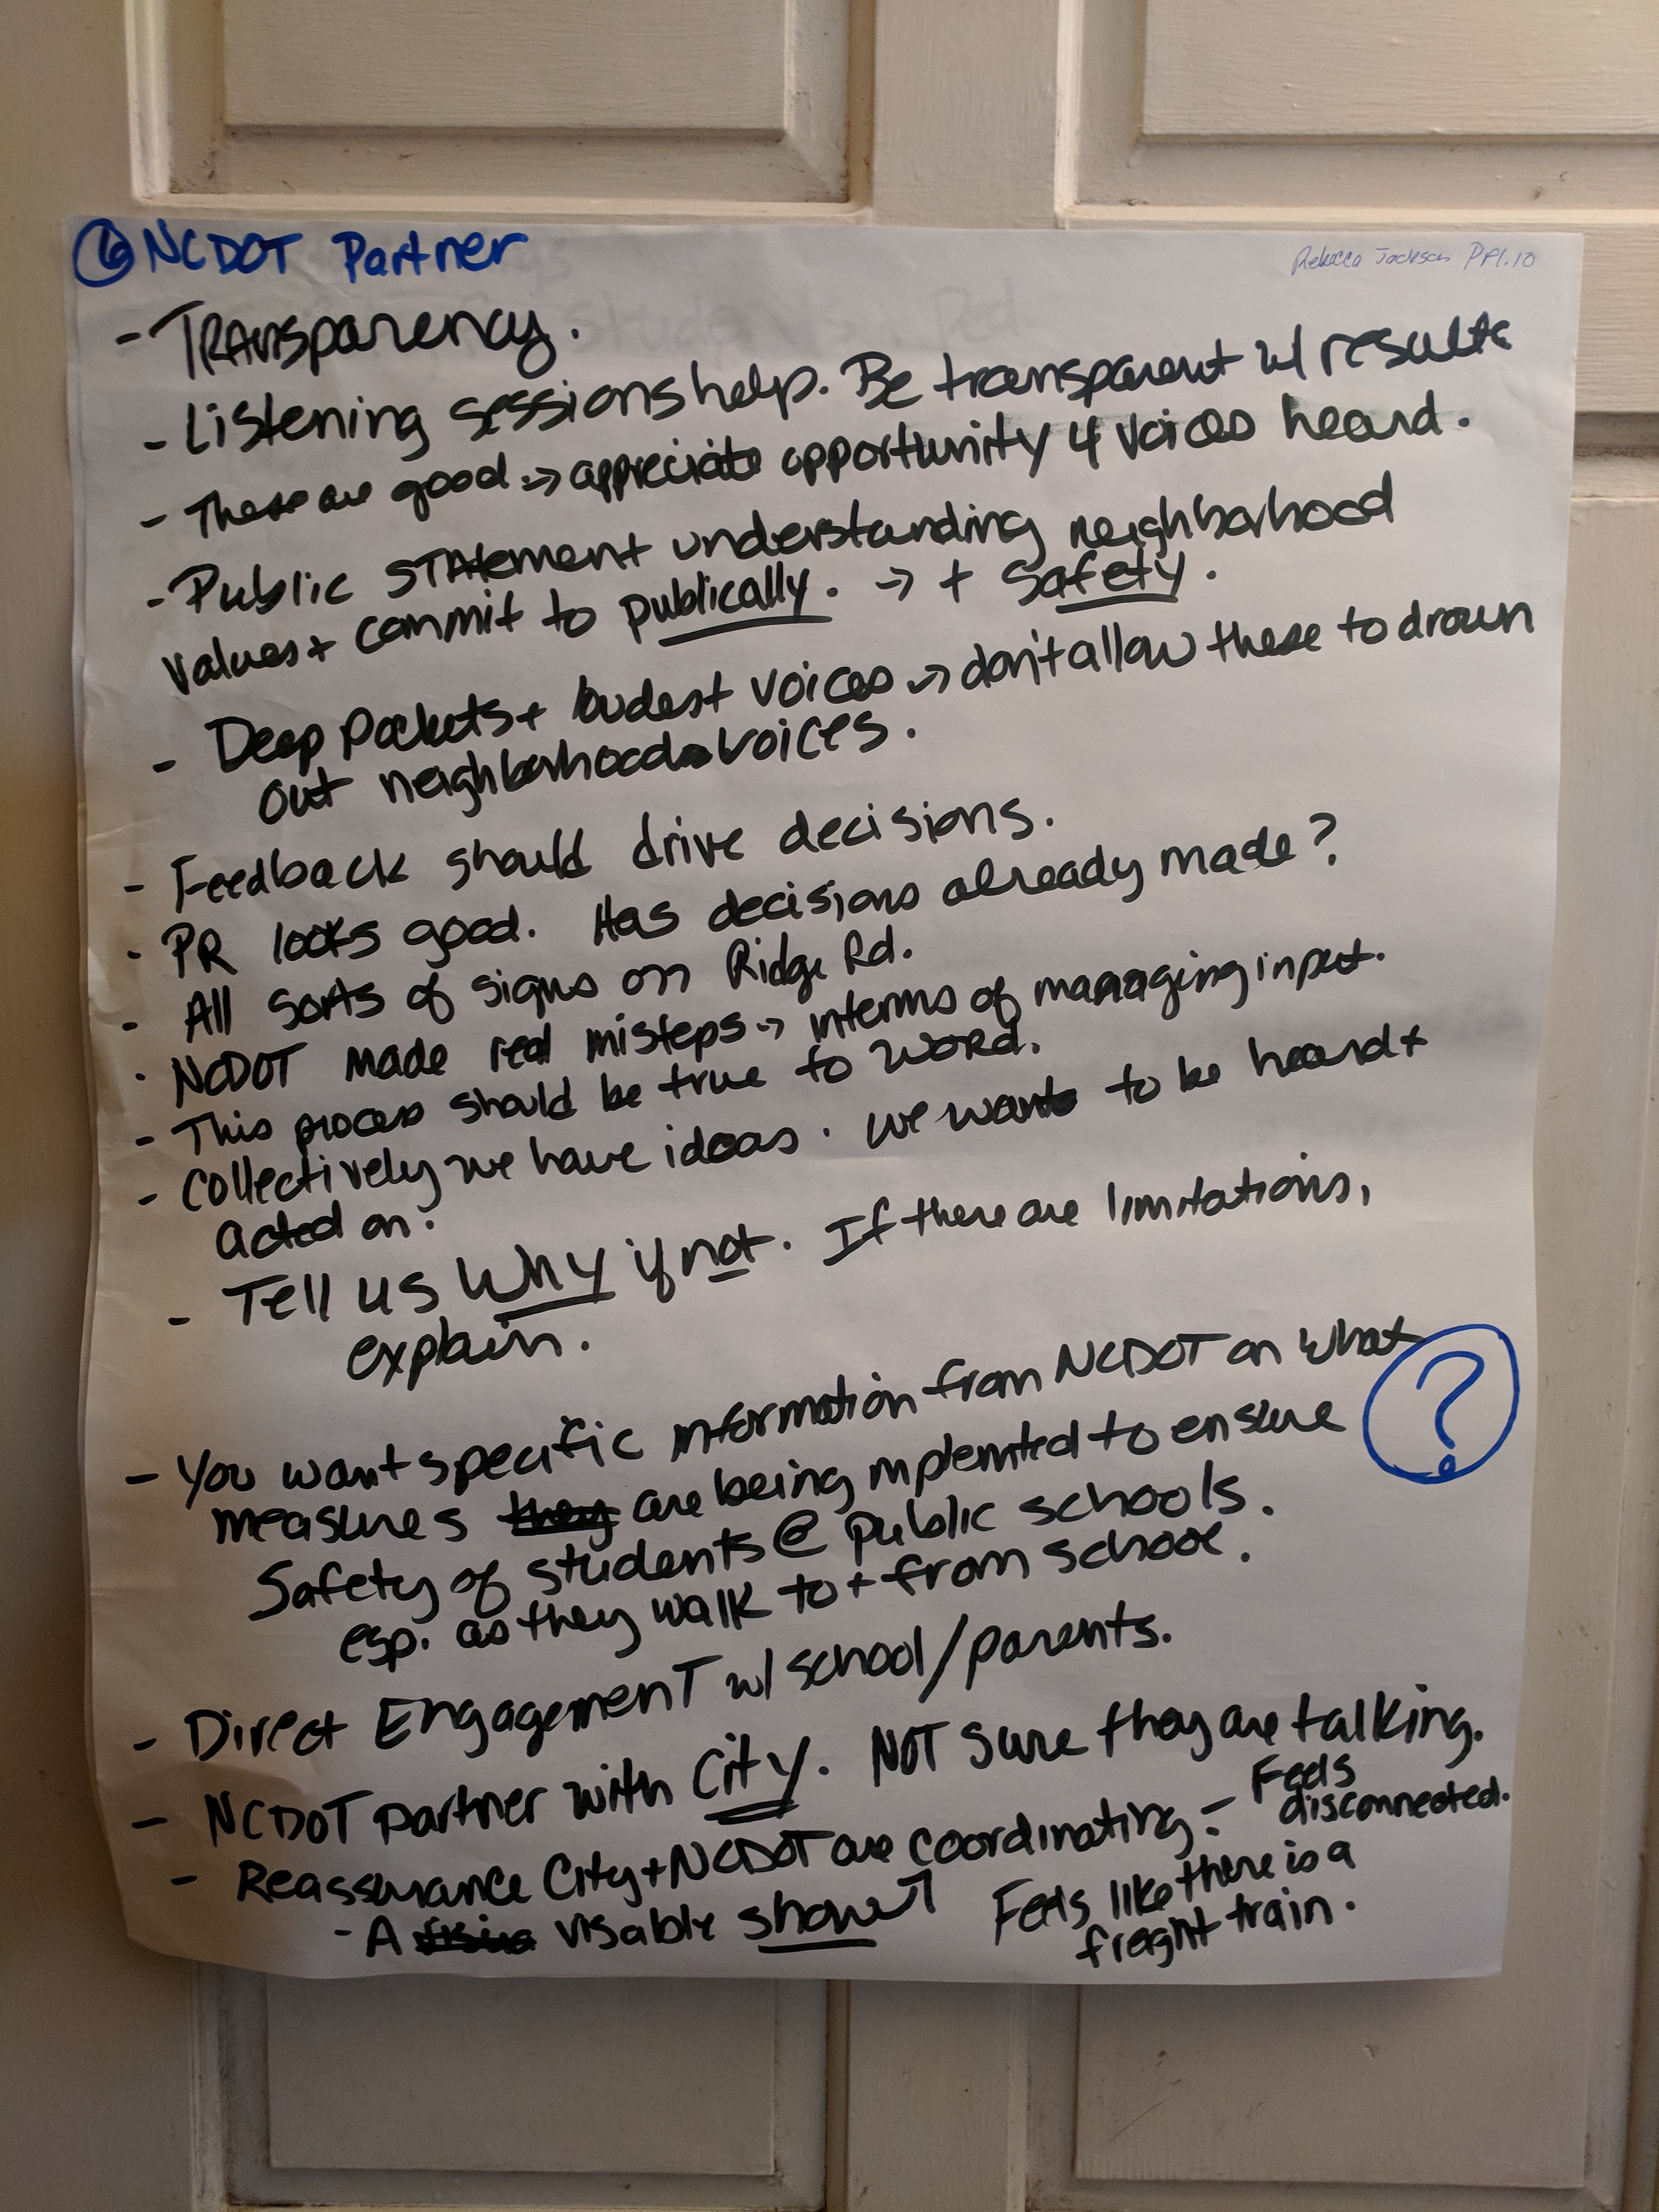 6 NCDOT Partner
Rebecca Jackson
- TRANsparency.
- Listening sessions help. Be transparent w/ results
- These are good → appreciate opportunity 4 voices heard.
- Public STAtement understanding neighborhood
values + commit to publically. → + Safety.
- Deep pockets + loudest voices → don't allow these to drown
out neighborhood voices.
- Feedback should drive decisions.
- PR looks good. Has decisions already made?
- All sorts of signs on Ridge Rd.
- NCDOT made real misteps → interms of managing input.
- This process should be true to WORD.
- Collectively we have ideas. We want to be heard +
acted on.
- Tell us Why if not. If there are limitations,
explain.
- You want specific information from NCDOT on what
?
measures they are being implemted to ensure
Safety of students @ public schools.
esp. as they walk to + from school.
- Direct EngagemenT w/ school/parents.
- NCDOT partner with City. NOT sure they are talking.
- Reassurance City + NCDOT are coordinating. - Feels
disconnected.
- A visable show Feels like there is a
freight train.